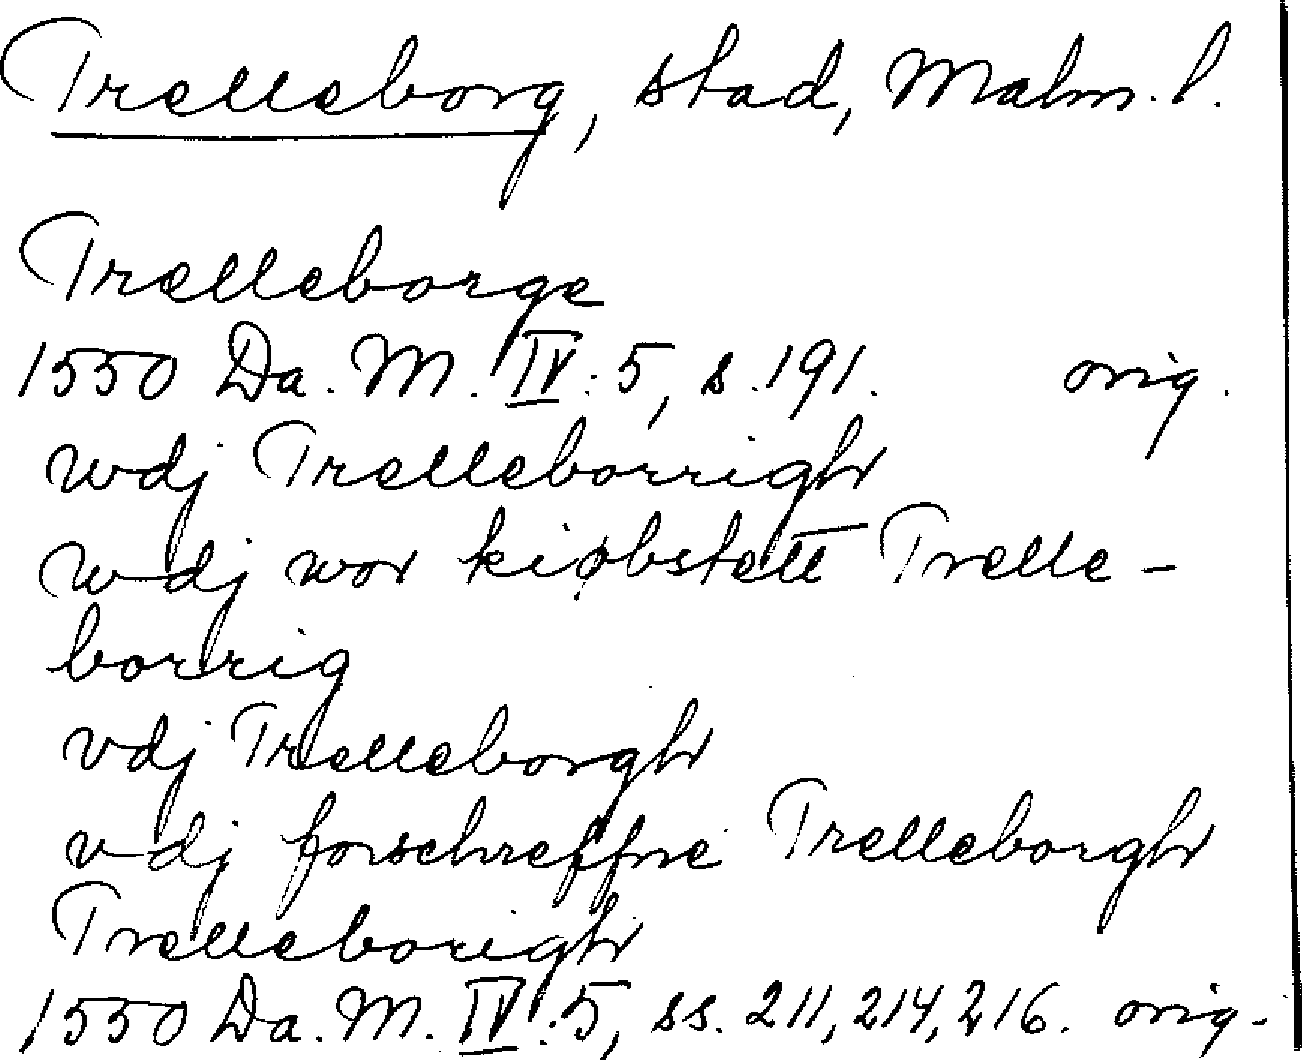 Trelleborg, stad, Malm. l.
Trælleborge
1550 Da. M. IV: 5, s. 191. orig.
wdj Trælleborrigh
wdj wor kiøbstett Trelle-
borrig
vdj Trelleborgh
vdj forschreffne Trelleborgh
Trelleborigh
1550 Da. M. IV: 5, ss. 211, 214, 216. orig.